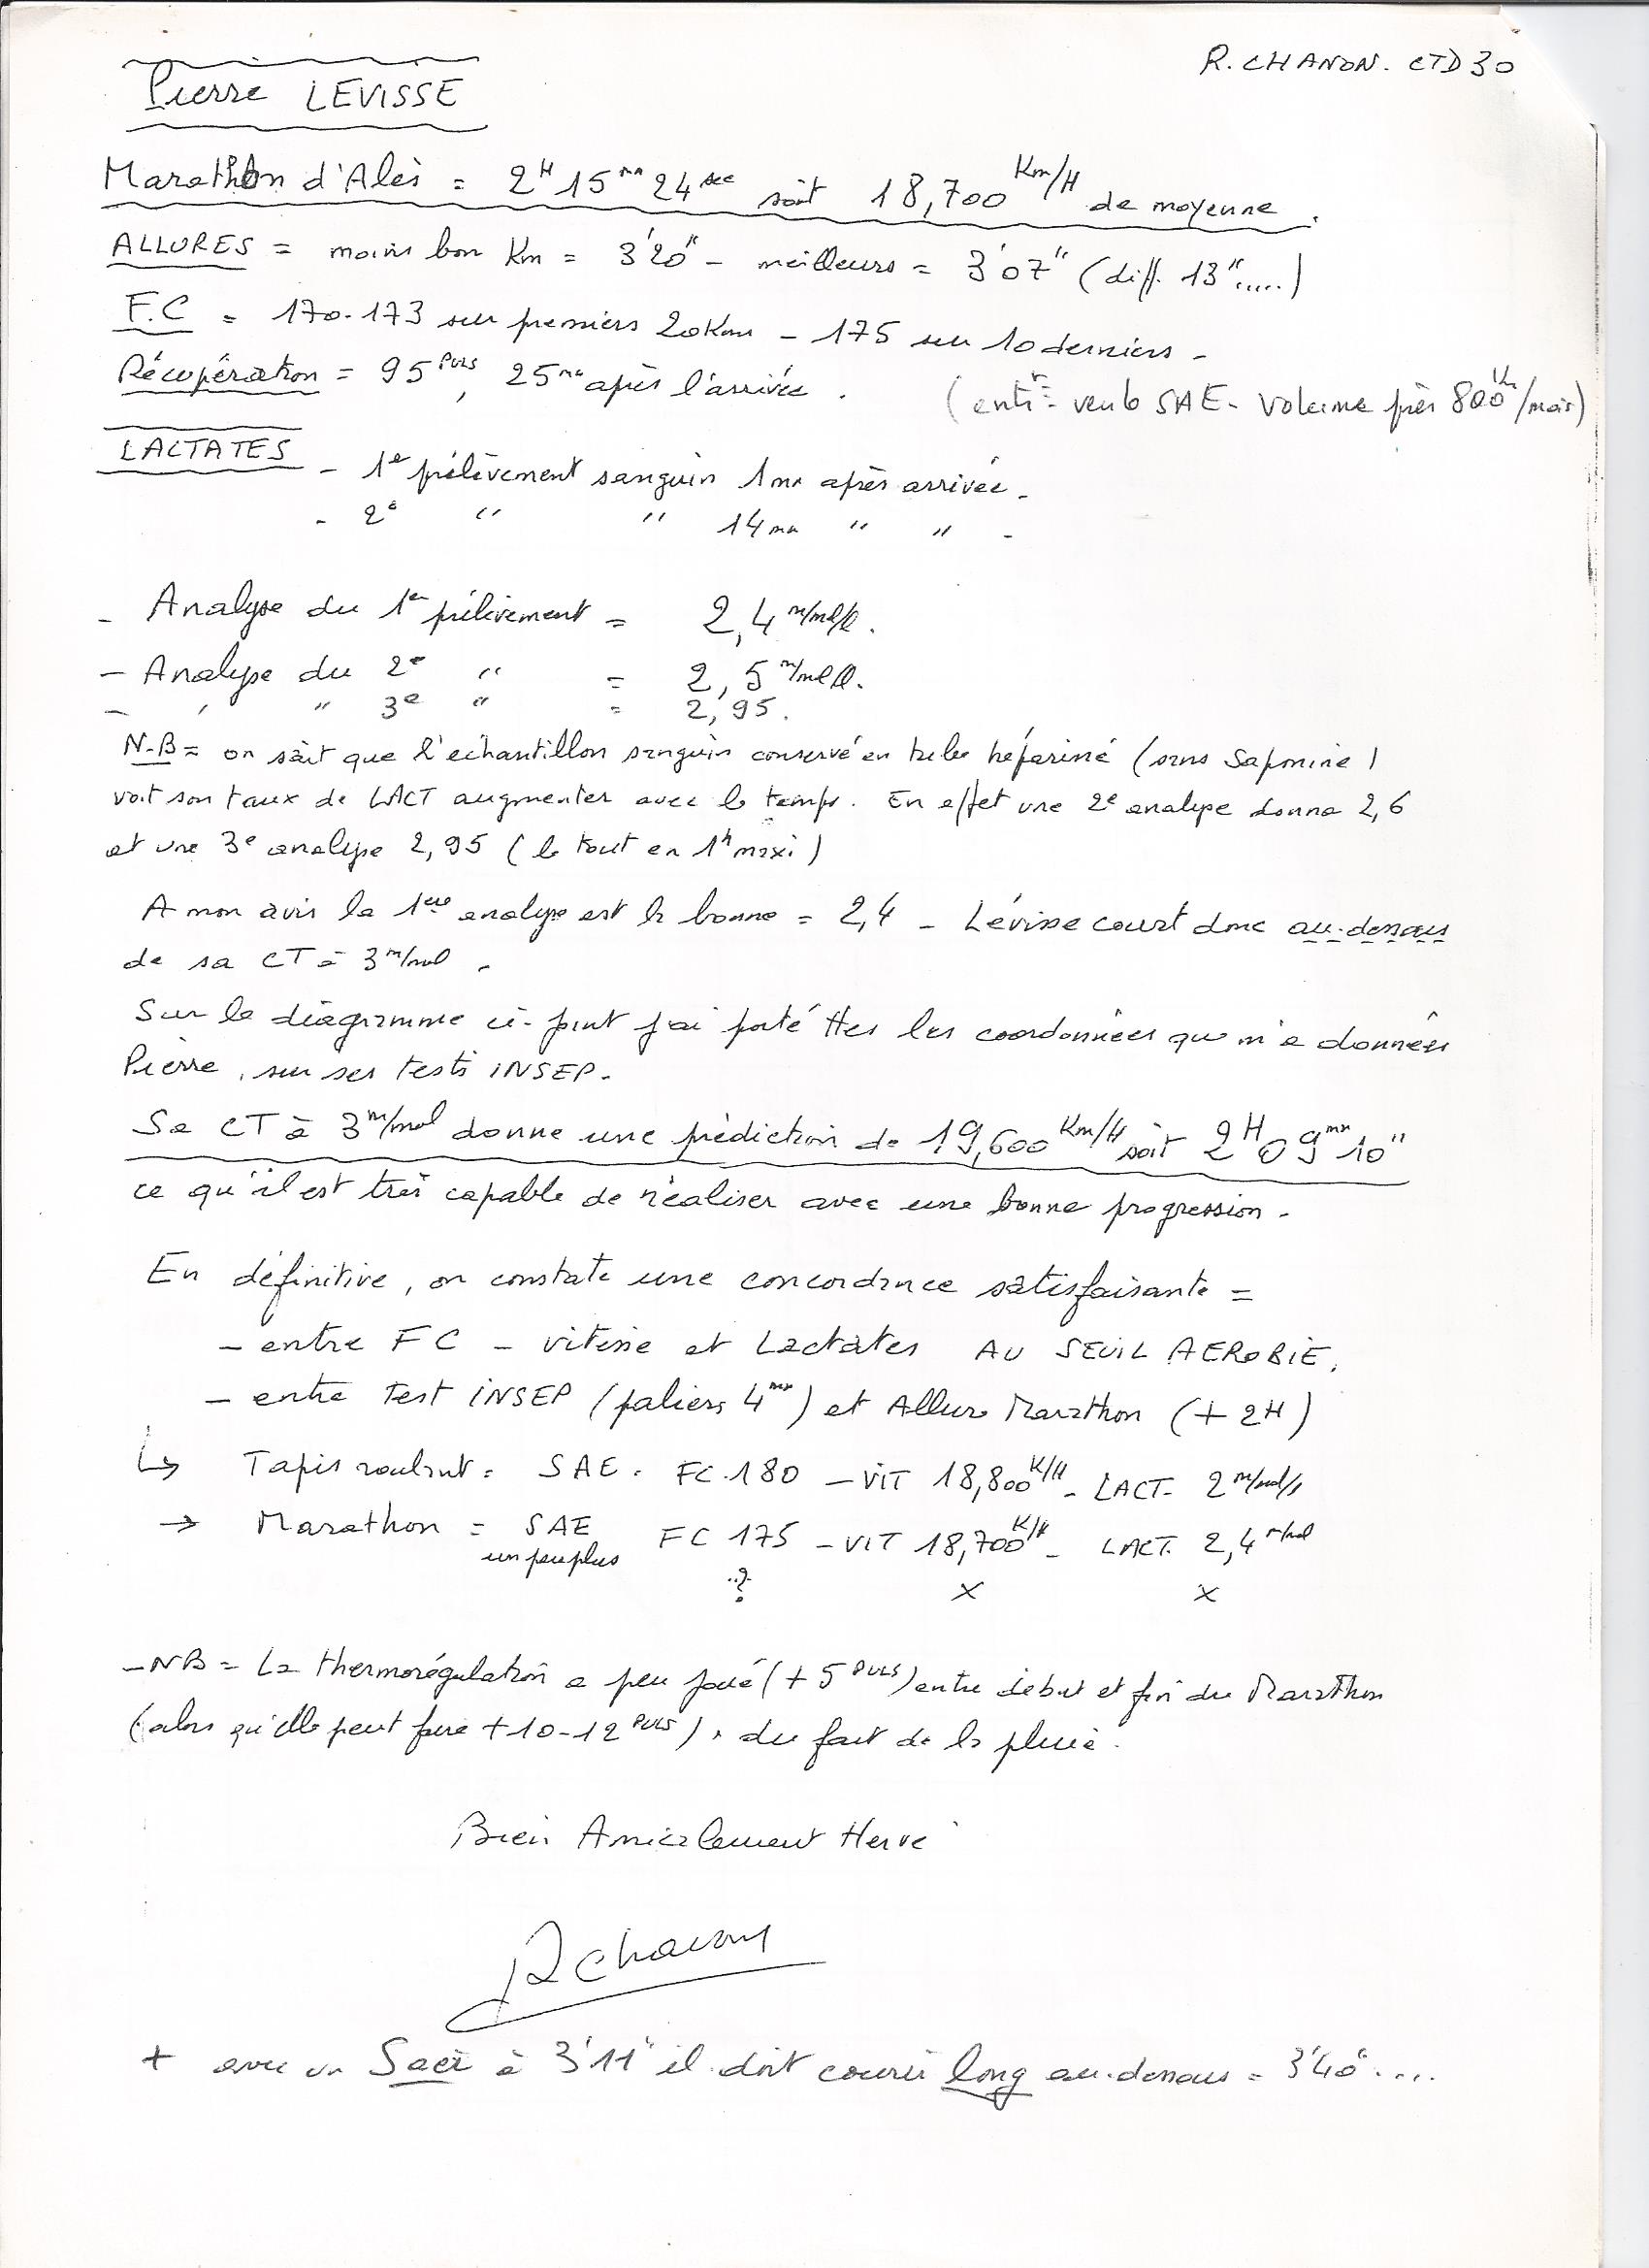 R. CHANON. CTD 30
Pierre LEVISSE
Marathon d'Alès = 2H 15mn 24sec soit 18,700 Km/H de moyenne.
ALLURES = moins bon Km = 3'20" - meilleurs = 3'07" (diff. 13".....)
F.C = 170-173 sur premiers 20Km - 175 sur 10 derniers -
Récupération = 95 PULS, 25mn après l'arrivée.
(entr = SAE - Volume près 800 Km/mois)
LACTATES - 1e prélèvement sanguin 1mn après arrivée -
- 2e " " 14mn " " -
- Analyse du 1er prélèvement = 2,4 m/mol/l.
- Analyse du 2e " = 2,5 m/mol/l.
- " " 3e " = 2,95.
N-B = on sait que l'échantillon sanguin conservé en tube hépariné (sans Saponine)
voit son taux de LACT augmenter avec le temps. En effet une 2e analyse donne 2,6
et une 3e analyse 2,95 (le tout en 1h maxi)
A mon avis la 1ère analyse est la bonne = 2,4 - Lévisse court donc au-dessous
de sa CT à 3 m/mol.
Sur le diagramme ci-joint j'ai porté ttes les coordonnées que m'a données
Pierre, sur ses tests INSEP.
Sa CT à 3 m/mol donne une prédiction de 19,600 Km/H soit 2H 09mn 10"
ce qu'il est très capable de réaliser avec une bonne progression -
En définitive, on constate une concordance satisfaisante =
- entre FC - vitesse et Lactates AU SEUIL AEROBIE.
- entre Test INSEP (paliers 4mn) et Allure Marathon (+ 2H)
↳ Tapis roulant = SAE. FC.180 - VIT 18,800 K/H - LACT- 2 m/mol/l
→ Marathon = SAE un peu plus FC 175 - VIT 18,700 K/H - LACT. 2,4 m/mol
? X X
- NB = La thermorégulation a peu joué (+ 5 PULS) entre début et fin du Marathon
(alors qu'elle peut faire + 10-12 PULS), du fait de la pluie.
Bien Amicalement Hervé
RChanon
+ avec un Saer à 3'11" il doit courir long au-dessous = 3'40"....